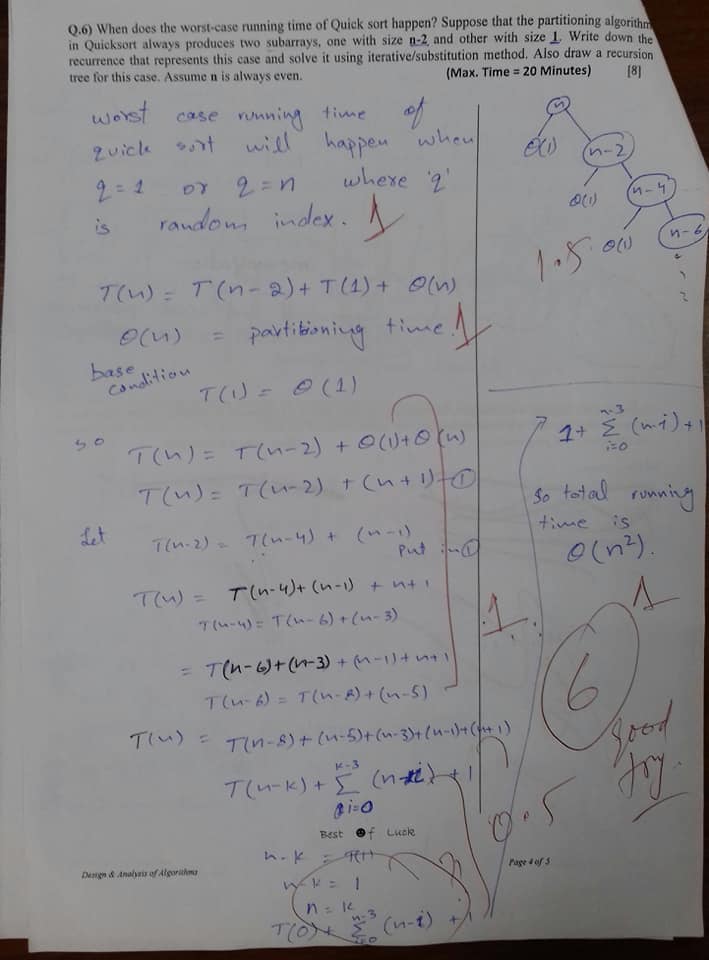 Q.6) When does the worst-case running time of Quick sort happen? Suppose that the partitioning algorithm
in Quicksort always produces two subarrays, one with size n-2 and other with size 1. Write down the
recurrence that represents this case and solve it using iterative/substitution method. Also draw a recursion
tree for this case. Assume n is always even.
(Max. Time = 20 Minutes) [8]
worst case running time of
quick sort will happen when
q = 1 or q = n where 'q'
is random index. 1
T(n) = T(n-2) + T(1) + Θ(n)
Θ(n) = partitioning time. 1
base condition
T(1) = Θ(1)
so T(n) = T(n-2) + Θ(1) + Θ(n)
T(n) = T(n-2) + (n+1) - ①
Let T(n-2) = T(n-4) + (n-1)
Put in ①
T(n) = T(n-4) + (n-1) + n+1
T(n-4) = T(n-6) + (n-3)
= T(n-6) + (n-3) + (n-1) + n+1
T(n-6) = T(n-8) + (n-5)
T(n) = T(n-8) + (n-5) + (n-3) + (n-1) + (n+1)
k-3
T(n-k) + Σ (n-i) + 1
i=0
Best of Luck
n-k = 1
n = k
n-3
T(0) + Σ (n-i) + 1
i=0
Design & Analysis of Algorithms
Page 4 of 5
n
Θ(1) n-2
Θ(1) n-4
Θ(1) n-6
1.5
1
n-3
1 + Σ (n-i) + 1
i=0
So total running
time is
Θ(n²).
1
6
good
try.
0.5